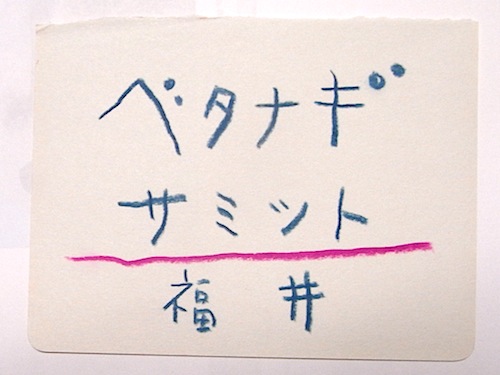 ベタナギ
サミット
福井